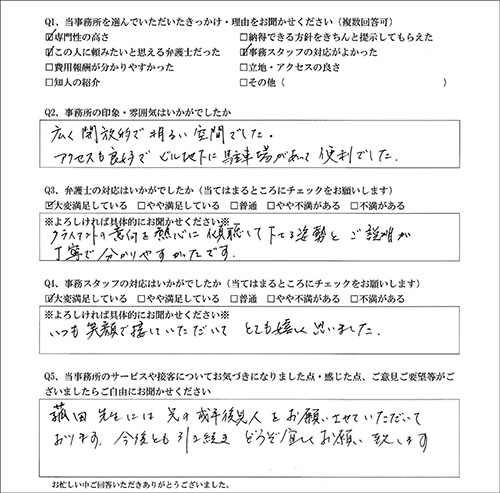 Q1、当事務所を選んでいただいたきっかけ・理由をお聞かせください（複数回答可）
☑専門性の高さ　□納得できる方針をきちんと提示してもらえた
☑この人に頼みたいと思える弁護士だった　☑事務スタッフの対応がよかった
□費用報酬が分かりやすかった　□立地・アクセスの良さ
□知人の紹介　□その他（　）
Q2、事務所の印象・雰囲気はいかがでしたか
広く開放的で明るい空間でした。
アクセスも良好でビル地下に駐車場があって便利でした。
Q3、弁護士の対応はいかがでしたか（当てはまるところにチェックをお願いします）
☑大変満足している　□やや満足している　□普通　□やや不満がある　□不満がある
※よろしければ具体的にお聞かせください※
クライアントの意向を熱心に傾聴して下さる姿勢とご説明が
丁寧で分かりやすかったです。
Q4、事務スタッフの対応はいかがでしたか（当てはまるところにチェックをお願いします）
☑大変満足している　□やや満足している　□普通　□やや不満がある　□不満がある
※よろしければ具体的にお聞かせください※
いつも笑顔で接していただいてとても嬉しく思いました。
Q5、当事務所のサービスや接客についてお気づきになりました点・感じた点、ご意見ご要望等がご
ざいましたらご自由にお聞かせください
田先生には兄の成年後見人をお願いさせていただいて
おります。今後とも引き続きどうぞ宜しくお願い致します
お忙しい中ご回答いただきありがとうございました。